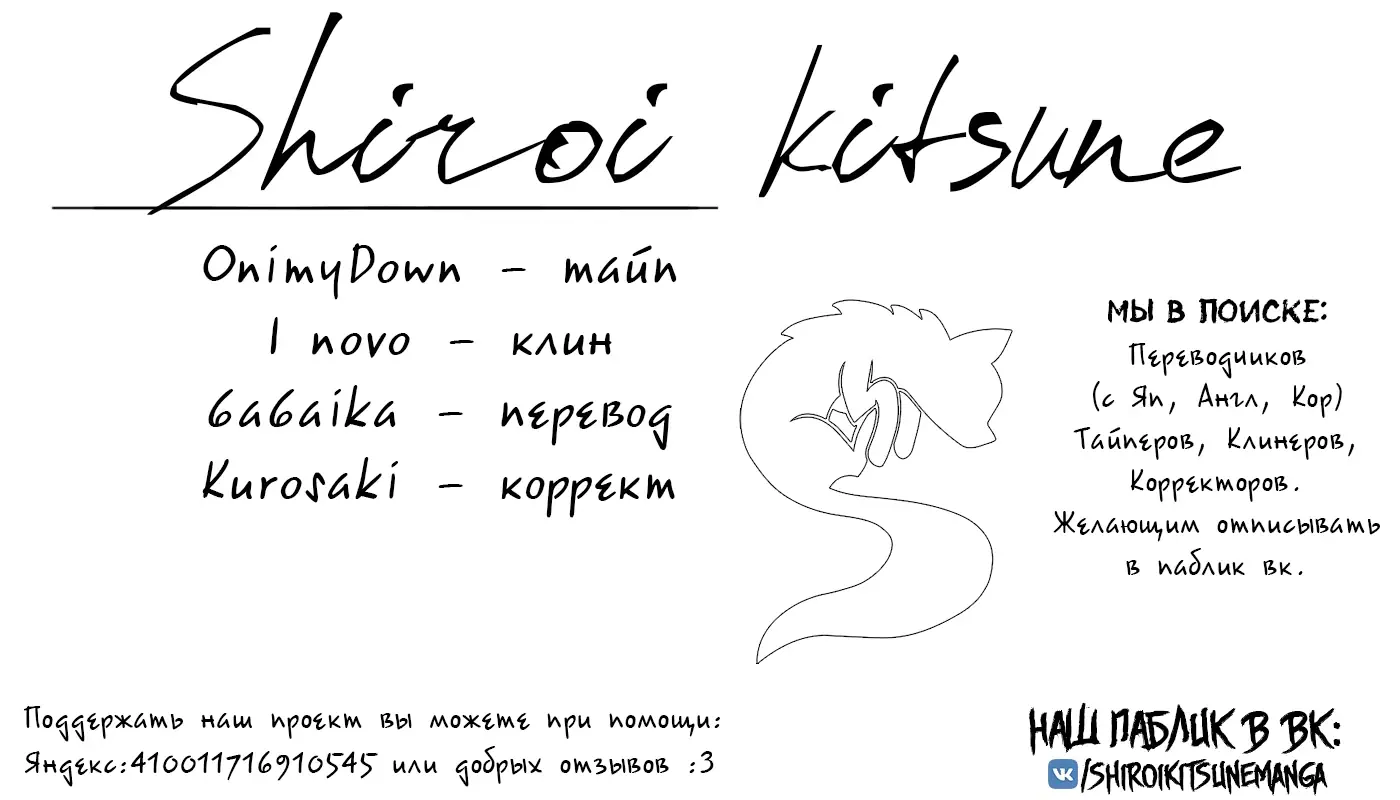 Shiroi kitsune
OnimyDown - тайп
I novo - клин
6a6aika - перевод
Kurosaki - коррект
МЫ В ПОИСКЕ:
Переводчиков
(с Яп, Англ, Кор)
Тайперов, Клинеров,
Корректоров.
Желающим отписывать
в паблик вк.
Поддержать наш проект вы можете при помощи:
Яндекс:410011716910545 или добрых отзывов :3
НАШ ПАБЛИК В ВК:
/SHIROIKITSUNEMANGA